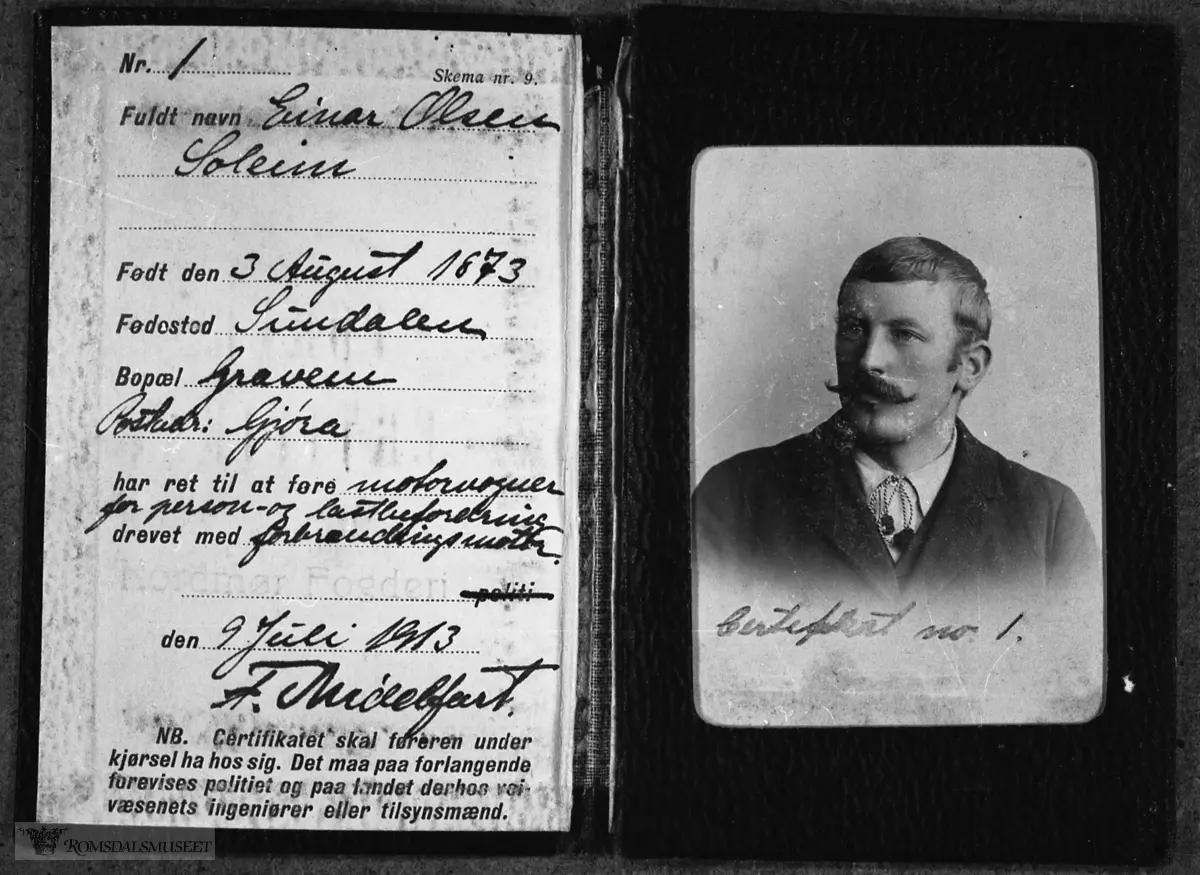 Nr. 1
Skema nr. 9.
Fuldt navn Einar Olsen
Soleim
Født den 3 August 1873
Fødested Sundalen
Bopæl Gravem
Postadr: Gjøra
har ret til at føre motorvogner
for person- og lastbefordring
drevet med forbrændingsmotor.
Nordmør Fogderi politi
den 9 Juli 1913
F. Midelfart.
NB. Certifikatet skal føreren under
kjørsel ha hos sig. Det maa paa forlangende
forevises politiet og paa landet derhos vei-
væsenets ingeniører eller tilsynsmænd.
Certifikat no 1.
ROMSDALSMUSEET